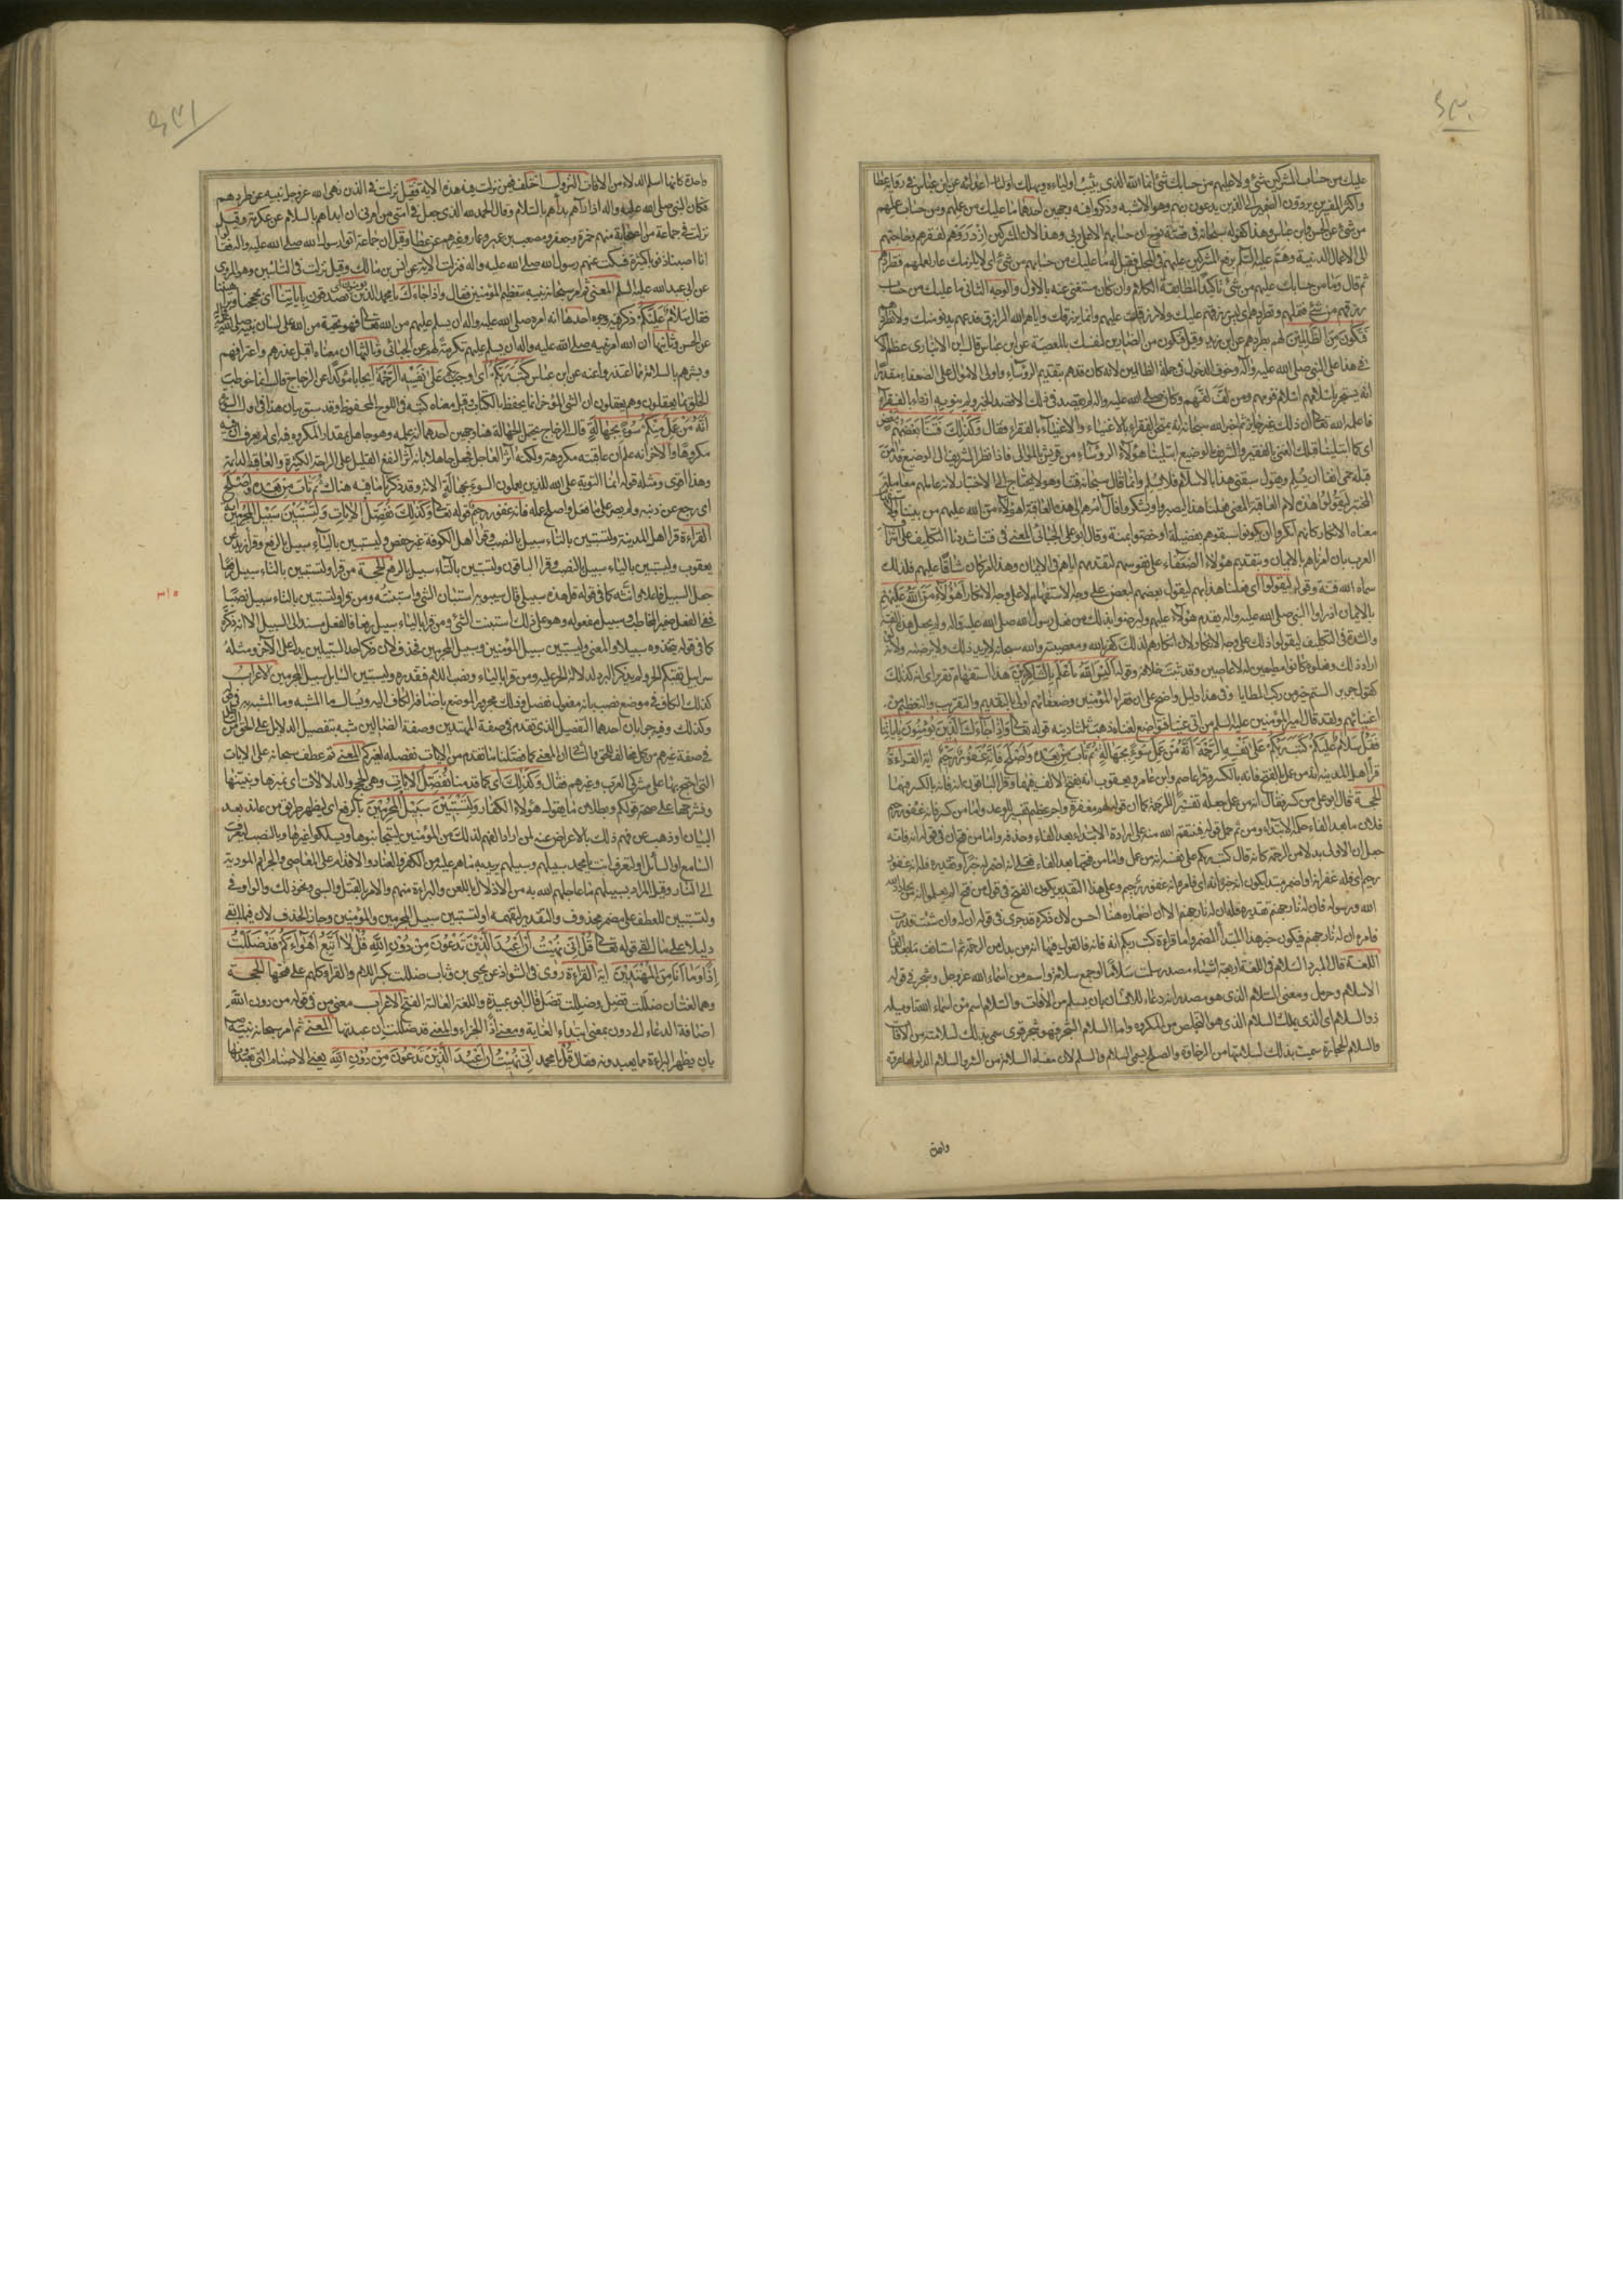 عليك من حساب المشركين شئ ولا عليهم من حسابك شئ انما الله الذي يثيب اولياءه ويهلك اعدائه عن ابن عباس في رواية عطا
واكثر المفسرين يردون الضمير الى الذين يدعون ربهم وهو الاشبه وذكروا فيه وجهين احدهما ما عليك من عملهم ومن حساب عملهم
من شئ عن الحسن وابن عباس وهذا كقوله سبحانه في قصة نوح ان حسابهم الا على ربي وهذا لان المشركين ازدروهم لفقرهم وحاجتهم
الى الاعمال الدنية وهم عليه السلم برفع المشركين عليهم في المجلس فقيل له ما عليك من حسابهم من شئ اي لا يلزمك عار بعملهم فتطردهم
ثم قال وما من حسابك عليهم من شئ تأكيدا لمطابقة الكلام وان كان مستغنى عنه بالاول والوجه الثاني ما عليك من حساب
رزقهم من شئ فتملهم وتطردهم اي ليس رزقهم عليك ولا رزقك عليهم وانما يرزقك واياهم الله الرازق فدعهم يدنوا منك ولا تطردهم
فتكون من الظالمين لهم بطردهم عن ابن زيد وقيل فتكون من الضارين لنفسك بالمعصية عن ابن عباس قال ابن الانباري عظم الامر
في هذا على النبي صلى الله عليه وآله وخوف الدخول في جملة الظالمين لانه كان قدهم بتقديم الرؤساء واولى الاموال على الضعفاء مقدرا
انه يستجر باسلامهم اسلام قومهم ومن لف لفهم وكان صلى الله عليه واله لم يقصد في ذلك الا قصد الخير ولم ينو به ازدراء الفقراء
فاعلمه الله تعالى ان ذلك غير جائز ثم اخبر الله سبحانه انه يمتحن الفقراء بالاغنياء والاغنياء بالفقراء فقال وكذلك فتنا بعضهم ببعض
اي كما ابتلينا قبلك الغني بالفقير والشريف بالوضيع ابتلينا هؤلاء الرؤساء من قريش بالموالي فاذا نظر الشريف الى الوضيع قد آمن
قبله حمي انفا ان يسلم ويقول سبقني هذا بالاسلام فلا يسلم وانما قال سبحانه فتنا وهو لا يحتاج الى الاختبار لانه عاملهم معاملة
المختبر ليقولوا هذه لام العاقبة المعنى فعلنا هذا ليصبروا ويشكروا فآل امرهم الى هذه العاقبة اهؤلاء من الله عليهم من بيننا
معناه الانكار كانهم انكروا ان يكونوا سبقوهم بفضيلة او خصوا بمنة وقال ابو علي الجبائي المعنى في فتنا شددنا التكليف على اشراف
العرب بان امرناهم بالايمان وبتقديم هؤلاء الضعفاء على نفوسهم لتقدمهم اياهم في الايمان وهذا امر كان شاقا عليهم فلذلك
سماه الله فتنة وقوله ليقولوا اي فعلنا هذا بهم ليقول بعضهم لبعض على وجه الاستفهام لا على وجه الانكار اهؤلاء من الله عليهم
بالايمان اذ راوا النبي صلى الله عليه واله يقدم هؤلاء عليهم وليرضوا بذلك من فعل رسول الله صلى الله عليه واله ولم يجعل هذه الفتنة
والشدة في التكليف ليقولوا ذلك على وجه الانكار لان انكارهم لذلك كفر بالله ومعصية والله سبحانه لا يريد ذلك ولا يرضيه ولانه لو
اراد ذلك وفعلوه كانوا مطيعين له لا عاصين وقد ثبت خلافه وقوله اليس الله باعلم بالشاكرين هذا استفهام تقرير اي انه كذلك
كقول جرير الستم خير من ركب المطايا وفي هذا دليل واضح على ان فقراء المؤمنين وضعفائهم اولى بالتقديم والتقريب والتعظيم من
اغنيائهم ولقد قال امير المؤمنين عليه السلم من اتى غنيا فتواضع لغنائه ذهب ثلثا دينه قوله تعالى واذا جاءك الذين يؤمنون باياتنا
فقل سلام عليكم كتب ربكم على نفسه الرحمة انه من عمل منكم سوءا بجهالة ثم تاب من بعده واصلح فانه غفور رحيم اية القراءة
قرأ اهل المدينة انه من عمل بالفتح فانه بالكسر وقرا عاصم وابن عامر ويعقوب انه بفتح الالف فيهما وقرأ الباقون انه فانه بالكسر فيهما
الحجة قال ابو علي من كسر فقال انه من عمل جعله تفسيرا للرحمة كما ان قوله لهم مغفرة واجر عظيم تفسير للوعد واما من كسر فانه غفور رحيم
فلان ما بعد الفاء حكمه الابتداء ومن ثم حمل قوله فينتقم الله منه على ارادة الابتداء بعد الفاء وحذفه واما من فتح ان في قوله انه فانه
جعل ان الاولى بدلا من الرحمة كانه قال كتب ربكم على نفسه انه من عمل واما من فتحها بعد الفاء فعلى انه اضمر له خبرا وتقديره فله انه غفور
رحيم اي فله غفرانه او اضمر مبتدا يكون انه خبره اي فامره انه غفور رحيم وعلى هذا التقدير يكون الفتح في قول من فتح الم يعلموا انه من يحادد
الله ورسوله فان له نار جهنم تقديره فله ان له نار جهنم الا ان اضماره هنا احسن لان ذكره قد جرى في قوله ان له وان شئت قدرت
فامره ان له نار جهنم فيكون خبر هذا المبتدأ المضمر واما قراءة كتب ربكم انه فانه فالقول فيها انه من بدل من الرحمة ثم استانف ما بعد الفاء
اللغة قال المبرد السلام في اللغة اربعة اشياء مصدر سلمت سلاما وجمع سلامة واسم من اسماء الله عز وجل وشجر في قوله
الاسلام وحرمل ومعنى السلام الذي هو مصدر انه دعاء للانسان بان يسلم من الافات والسلام اسم من اسماء الله تاويله
ذو السلام اي الذي يملك السلام الذي هو التخلص من المكروه واما السلام الشجر فهو شجر قوي سمي بذلك لسلامته من الافات
والسلام الحجارة سميت بذلك لسلامتها من الرخاوة والصلح يسمى السلام والسلم لان معناه السلامة من الشر والسلام الدلو لها عروة
واحدة كانها اسلم الدلاء من الافات النزول اختلف فيمن نزلت فيه هذه الاية فقيل نزلت في الذين نهى الله عز وجل نبيه عن طردهم
فكان النبي صلى الله عليه واله اذا رآهم بدأهم بالسلام وقال الحمد لله الذي جعل في امتي من امرني ان ابدأهم بالسلام عن عكرمة وقيل
نزلت في جماعة من الصحابة منهم حمزة وجعفر ومصعب بن عمير وعمار وغيرهم عن عطا وقيل ان جماعة اتوا رسول الله صلى الله عليه واله فقالوا
انا اصبنا ذنوبا كثيرة فسكت عنهم رسول الله صلى الله عليه واله فنزلت الآية عن انس بن مالك وقيل نزلت في التائبين وهو المروي
عن ابي عبد الله عليه السلم المعنى ثم امر سبحانه نبيه بتعظيم المؤمنين فقال واذا جاءك يا محمد الذين يؤمنون اي يصدقون باياتنا اي بحججنا وبراهيننا
فقال سلام عليكم ذكر فيه وجوه احدها انه امره صلى الله عليه واله ان يسلم عليهم من الله تعالى فهو تحية من الله على لسان نبيه صلى الله عليه واله
عن الحسن وثانيها ان الله امر نبيه صلى الله عليه واله ان يسلم عليهم تكرمة لهم عن الجبائي وثالثها ان معناه اقبل عذرهم واعترافهم
وبشرهم بالسلامة مما اعتذروا عنه عن ابن عباس كتب ربكم اي اوجب على نفسه الرحمة ايجابا مؤكدا عن الزجاج قال انما خوطب
الخلق بما يعقلون وهم يعقلون ان الشئ المؤخر انما يحفظ بالكتاب وقيل معناه كتبه في اللوح المحفوظ وقد سبق بيان هذا في اول السورة
انه من عمل منكم سوءا بجهالة قال الزجاج يحتمل الجهالة هنا وجهين احدهما انه عمله وهو جاهل بمقدار المكروه فيه اي لم يعرف ان فيه
مكروها والاخر انه علم ان عاقبته مكروهة ولكنه آثر العاجل فجعل جاهلا بانه آثر النفع القليل على الراحة الكثيرة والعاقبة الدائمة
وهذا اقوى ومثله قوله انما التوبة على الله للذين يعملون السوء بجهالة الاية وقد ذكرنا ما فيه هناك ثم تاب من بعده واصلح
اي رجع عن ذنبه ولم يصر على ما فعل واصلح عمله فانه غفور رحيم قوله تعالى وكذلك نفصل الايات ولتستبين سبيل المجرمين
القراءة قرا اهل المدينة ولتستبين بالتاء سبيل بالنصب وقرا اهل الكوفة غير حفص وليستبين بالياء سبيل بالرفع وقرا زيد عن
يعقوب وليستبين بالياء سبيل بالنصب وقرا الباقون ولتستبين بالتاء سبيل بالرفع الحجة من قرا ولتستبين بالتاء سبيل رفعا
جعل السبيل فاعلا وانثه كما في قوله قل هذه سبيلي قال سيبويه استبان الشئ واستبنته ومن قرا ولتستبين بالتاء سبيل نصبا
ففي الفعل ضمير المخاطب وسبيل مفعوله وهو على ذلك استبنت الشئ ومن قرا بالياء سبيل رفعا فالفعل مسند الى السبيل الا انه ذكر
كما في قوله يتخذوه سبيلا والمعنى وليستبين سبيل المؤمنين وسبيل المجرمين فحذف لان ذكر احد السبيلين يدل على الآخر ومثله
سرابيل تقيكم الحر ولم يذكر البرد لدلالة الحر عليه ومن قرا بالياء ونصب اللام فتقديره وليستبين السائل سبيل المجرمين الاعراب
كذلك الكاف في موضع نصب بانه مفعول نفصل وذلك مجرور الموضع باضافة الكاف اليه ويسأل ما المشبه وما المشبه به في قوله
وكذلك وفيه جوابان احدهما التفصيل الذي تقدم في صفة المهتدين وصفة الضالين شبه بتفصيل الدلائل على الحق من الباطل
في صفة غيرهم من كل مخالف للحق والثاني ان المعنى كما فصلنا ما تقدم من الايات نفصله لغيركم المعنى ثم عطف سبحانه على الايات
التي احتج بها على مشركي العرب وغيرهم فقال وكذلك اي كما قدمنا نفصل الايات وهي الحجج والدلالات اي نميزها ونبينها
ونشرحها على صحة قولكم وبطلان ما يقوله هؤلاء الكفار ولتستبين سبيل المجرمين بالرفع اي ليظهر طريق من عاند بعد
البيان اذ ذهب عن فهم ذلك بالاعراض عنه لمن اراد التفهم لذلك من المؤمنين ليتجانبوها ويسلكوا غيرها وبالنصب ليعرف
السامع او السائل او لتعرف انت يا محمد سبيلهم وسبيلهم يريد به ما هم عليه من الكفر والعناد والاقدام على المعاصي والجرائم المودية
الى النار وقيل المراد بسبيلهم ما عاجلهم الله به من الاذلال باللعن والبراءة منهم والامر بالقتل والسبي ونحو ذلك والواو في
ولتستبين للعطف على مضمر محذوف والتقدير لتفهموا ولتستبين سبيل المجرمين والمؤمنين وجاز الحذف لان فيما ابقى
دليلا على ما القى قوله تعالى قل اني نهيت ان اعبد الذين تدعون من دون الله قل لا اتبع اهواءكم قد ضللت
اذا وما انا من المهتدين اية القراءة روى في الشواذ عن يحيى بن وثاب ضللت بكسر اللام والقراء كلهم على فتحها الحجة
وهما لغتان ضللت تضل وضللت تضل قال ابو عبيدة واللغة الغالبة الفتح الاعراب معنى من في قوله من دون الله
اضافة الدعاء الى دون بمعنى ابتداء الغاية ومعنى اذا الجزاء والمعنى قد ضللت ان عبدتها المعنى ثم امر سبحانه نبيه
بان يظهر البراءة مما يعبدونه فقال قل يا محمد اني نهيت ان اعبد الذين تدعون من دون الله يعني الاصنام التي تعبدونها